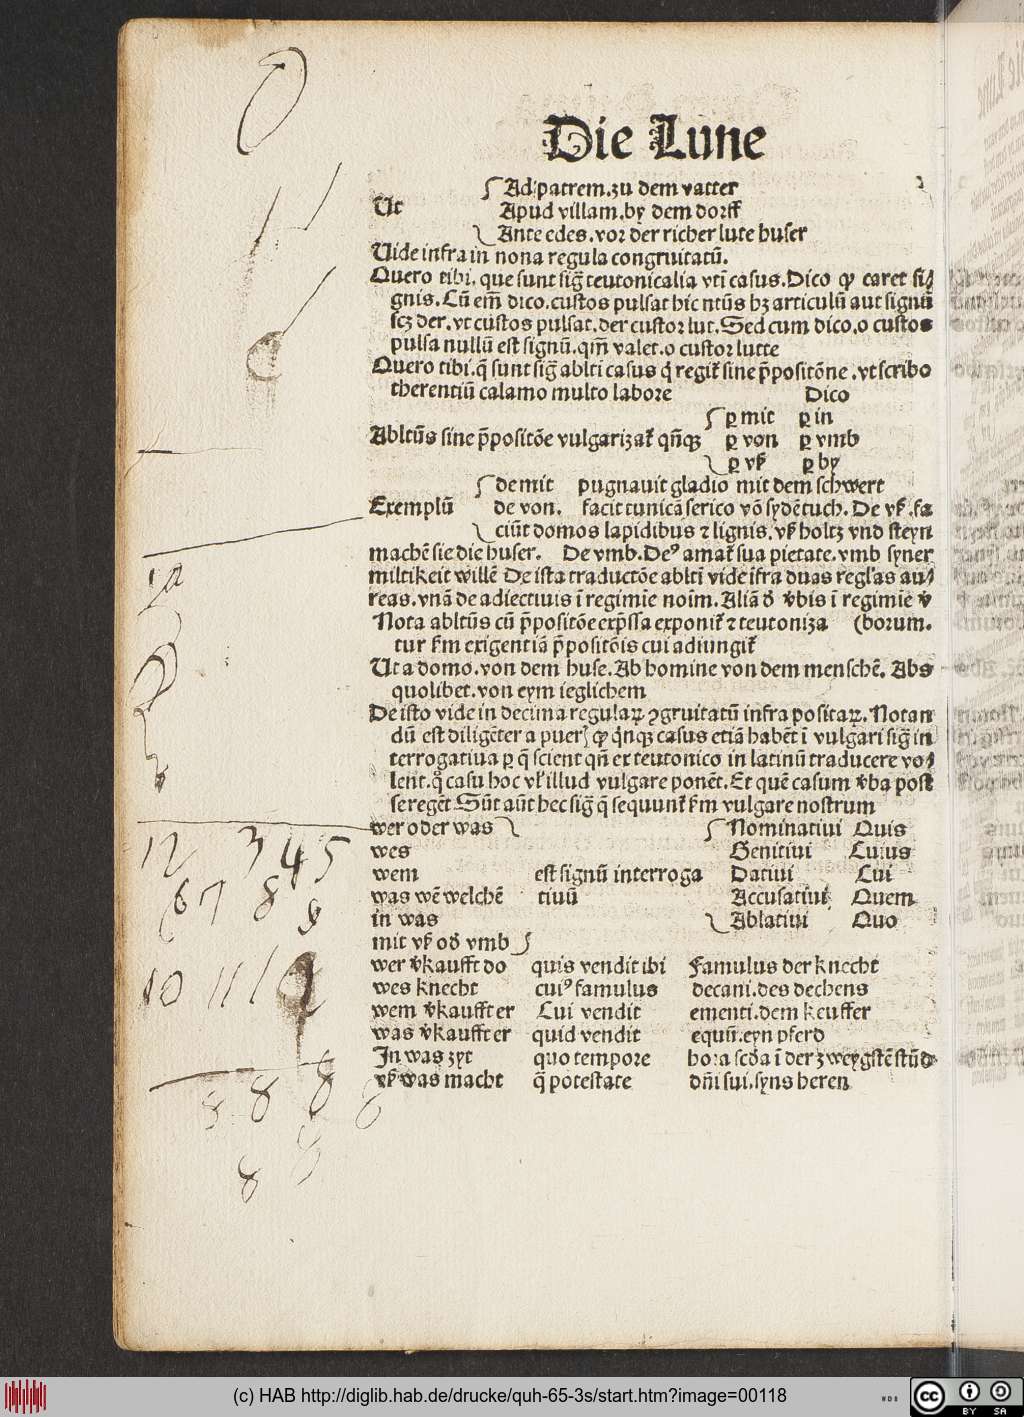 Die Lune
Ad patrem.zu dem vatter
Ut Apud villam.by dem dorff
Ante edes.vor der richer lute huser
Uide infra in nona regula congruitatū.
Quero tibi. que sunt sig̃ teutonicalia vti casus. Dico ꝙ caret si⸗
gnis. Cū em̄ dico. custos pulsat hic ntūs hꝫ articulū aut signū
scꝫ der. vt custos pulsat. der custor lut. Sed cum dico. o custos
pulsa nullū est signū. qm̄ valet. o custor lutte
Quero tibi. q̄ sunt sig̃ ablti casus q̇ regit̄ sine p̄positōne. vt scribo
therentiū calamo multo labore Dico
ꝑ mit ꝑ in
Abltūs sine p̄positōe vulgarizat̄ qn̄qꝫ ꝑ von ꝑ vmb
ꝑ vß ꝑ by
de mit pugnauit gladio mit dem schwert
Exemplū de von. facit tunicā serico vō sydē tuch. De vß. fa
ciūt domos lapidibus ⁊ lignis. vß holtz vnd steyn
machē sie die huser. De vmb. Deꝰ amat̄ sua pietate. vmb syner
miltikeit willē De ista traductōe ablti vide ifra duas regl'as au⸗
reas. vnā de adiectiuis ī regimīe noīm. Aliā đ v̄bis ī regimīe v̄
Nota abltūs cū p̄positōe exp̄ssa exponit̄ ⁊ teutoniza (borum.
tur ẜm exigentiā p̄positōis cui adiungit̄
Ut a domo. von dem huse. Ab homine von dem menschē. Abs
quolibet. von eym ieglichem
De isto vide in decima regulaꝝ ꝯgruitatū infra positaꝝ. Notan
dū est diligēter a puer ꝙ q̇nqꝫ casus etiā habēt ī vulgari sig̃ in
terrogatiua ꝑ q̄ scient qn̄ ex teutonico in latinū traducere vo⸗
lent. q̊ casu hoc vl' illud vulgare ponēt. Et quē casum v̄ba post
se regēt. Sūt aūt hec sig̃ q̄ sequunt̄ ẜm vulgare nostrum
wer oder was Nominatiui Quis
wes Genitiui Cuius
wem est signū interroga Datiui Cui
was wē welchē tiuū Accusatiui Quem
in was Ablatiui Quo
mit vß ođ vmb
wer v̄kaufft do quis vendit ibi Famulus der knecht
wes knecht cuiꝰ famulus decani. des dechens
wem v̄kaufft er Cui vendit ementi. dem keuffer
was v̄kaufft er quid vendit equū. eyn pferd
In was zyt quo tempore hora scđa ī der zweygstē stūd
vß was macht q̄ potestate dn̄i sui. syns heren
12 3 4 5
6 7 8 9
10 11 12
8 8 8
8 8
(c) HAB http://diglib.hab.de/drucke/quh-65-3s/start.htm?image=00118
WDB
cc BY SA